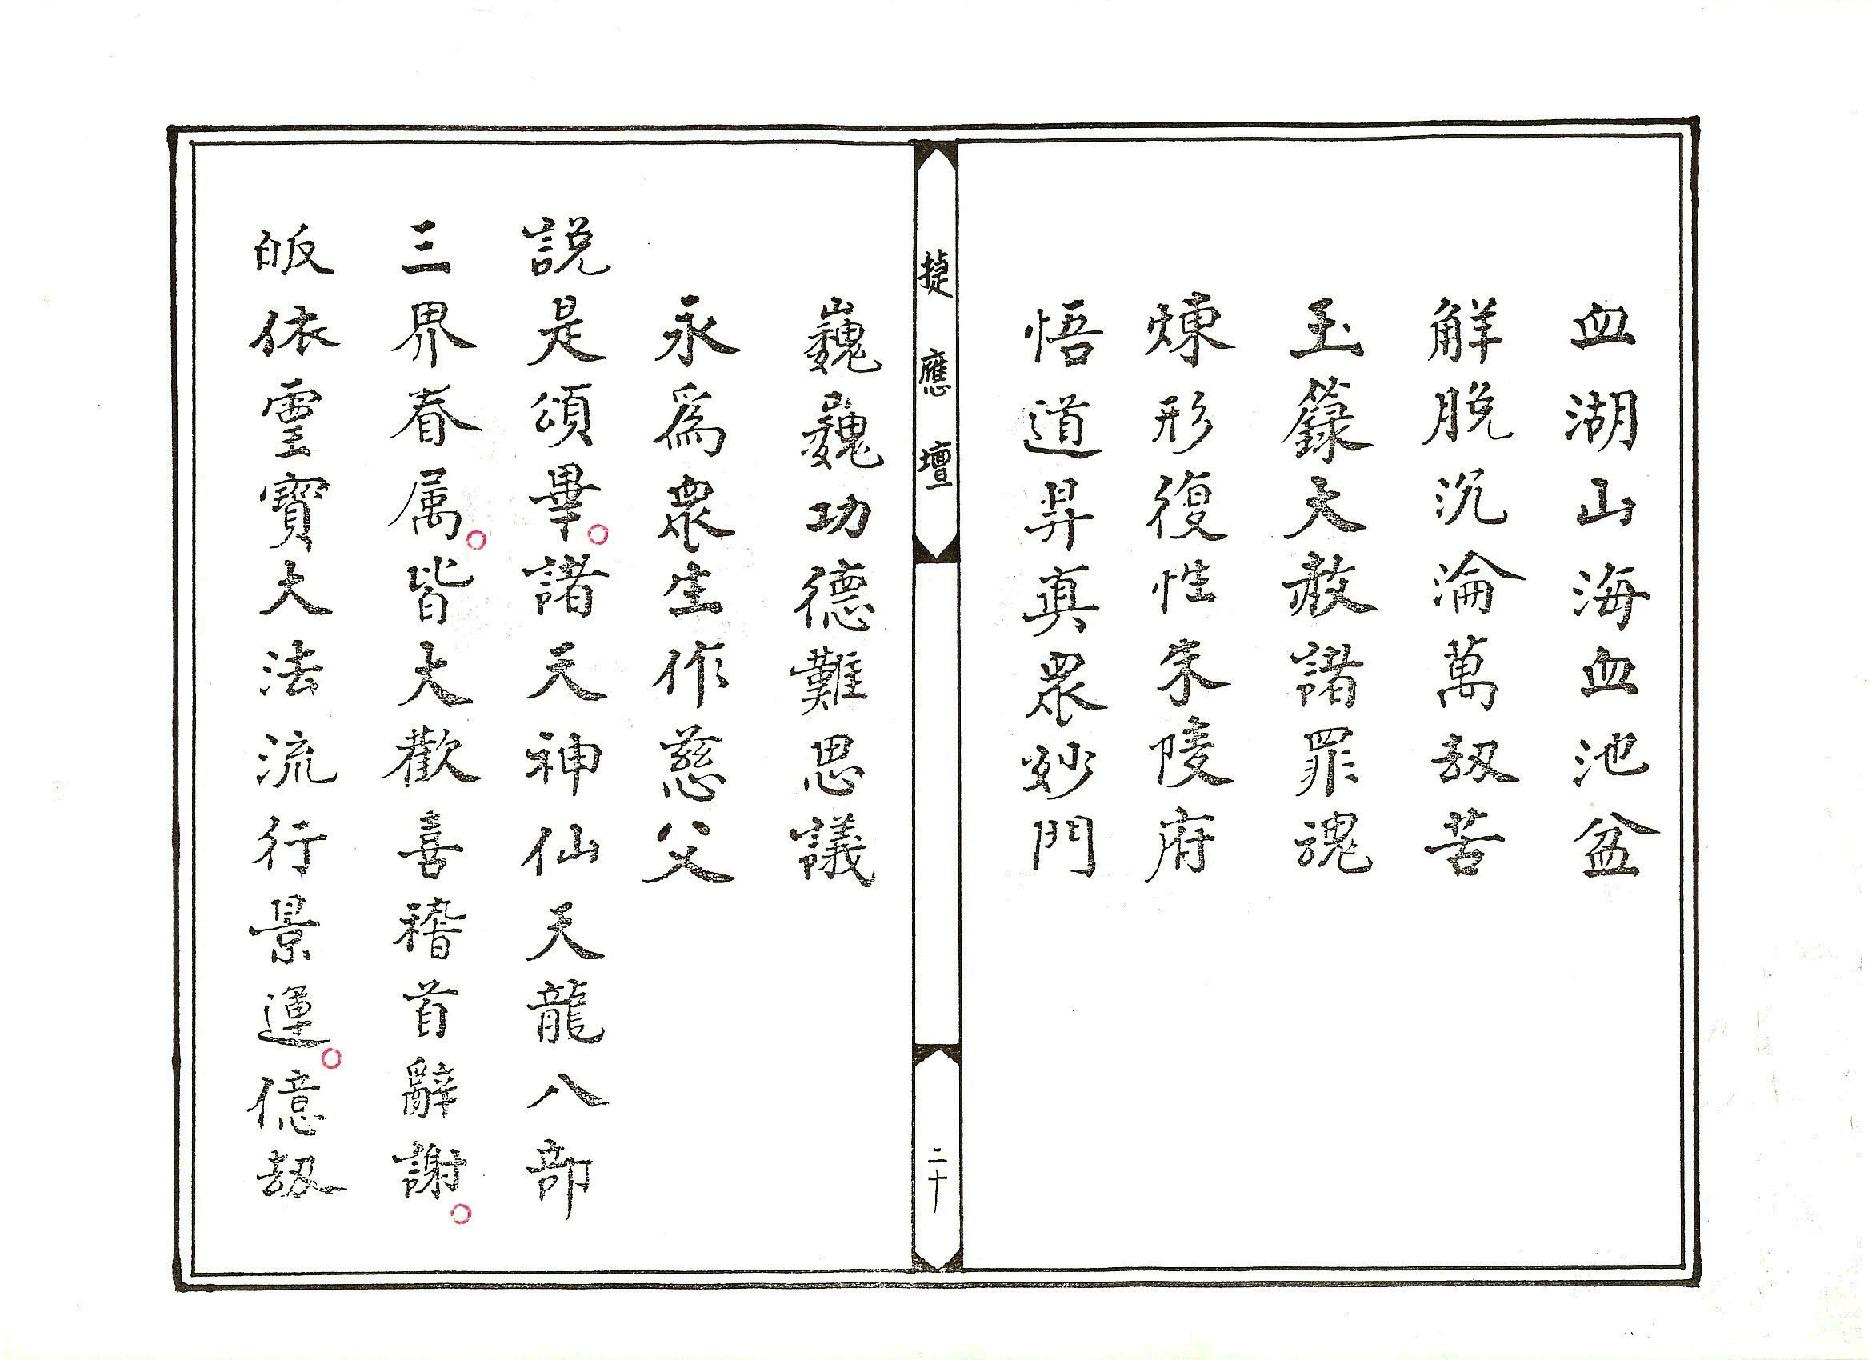 血湖山海血池盆
解脫沉淪萬刼苦
玉籙大赦諸罪魂
煉形復性朱陵府
悟道昇真眾妙門
捷應壇
二十
巍巍功德難思議
永為眾生作慈父
說是頌畢。諸天神仙天龍八部
三界眷属。皆大歡喜稽首辭謝。
皈依霊寶大法流行景運。億刼